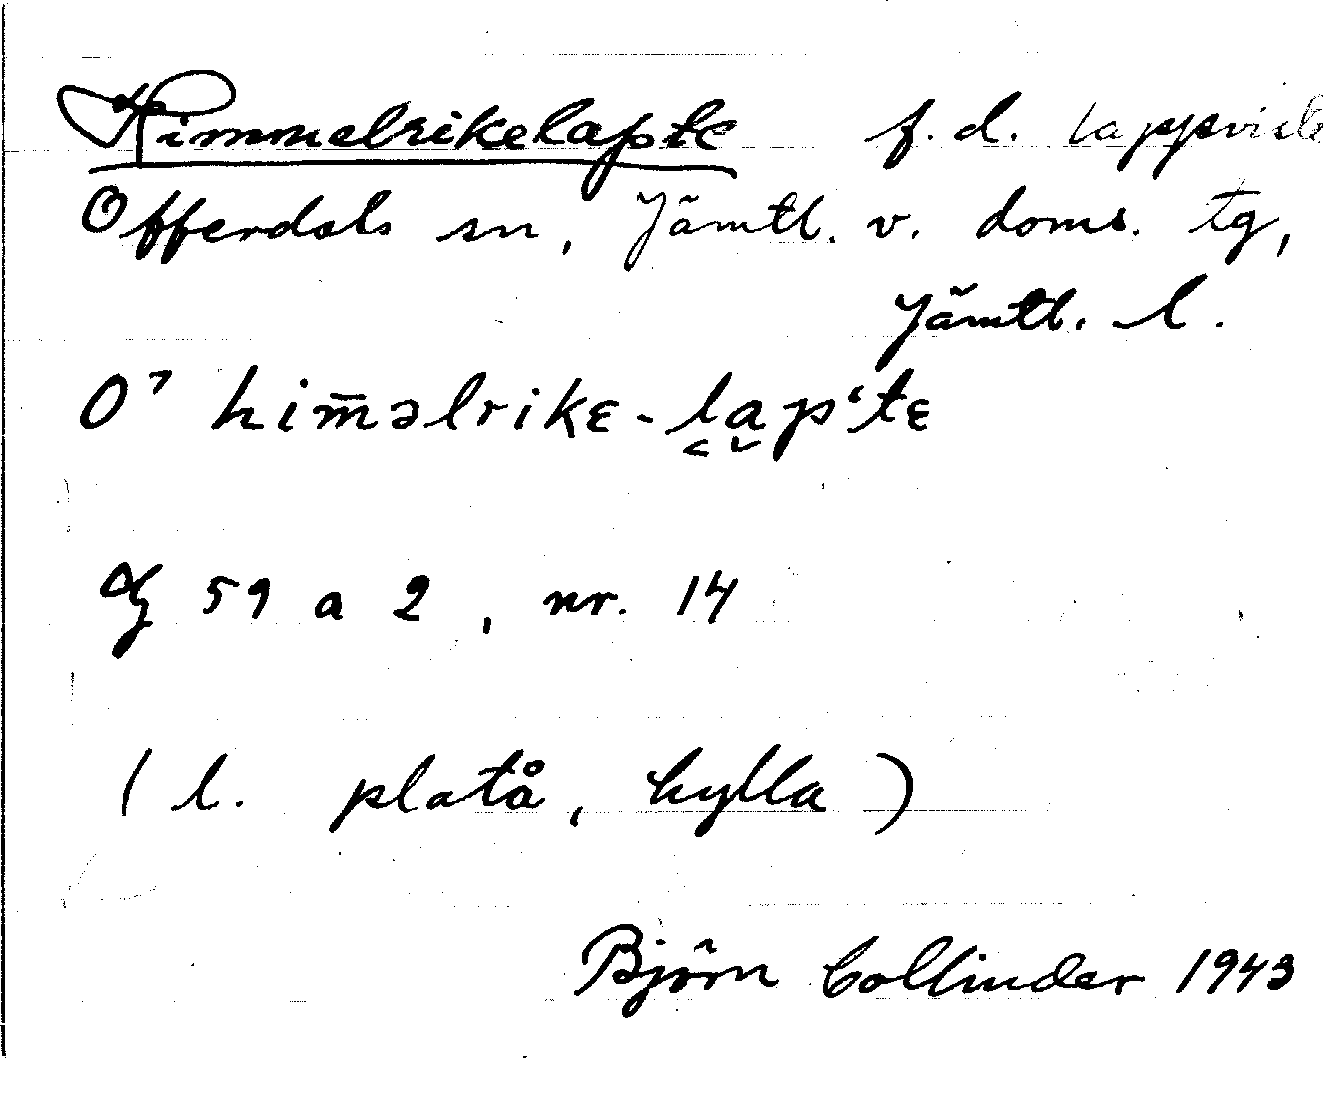 Himmelrikelapte f. d. lappviste
Offerdals sn, Jämtl. v. doms. tg,
Jämtl. l.
O⁷ him̅əlrikɛ-lap‘tɛ
59 a 2, nr. 14
(l. platå, hylla)
Björn Collinder 1943